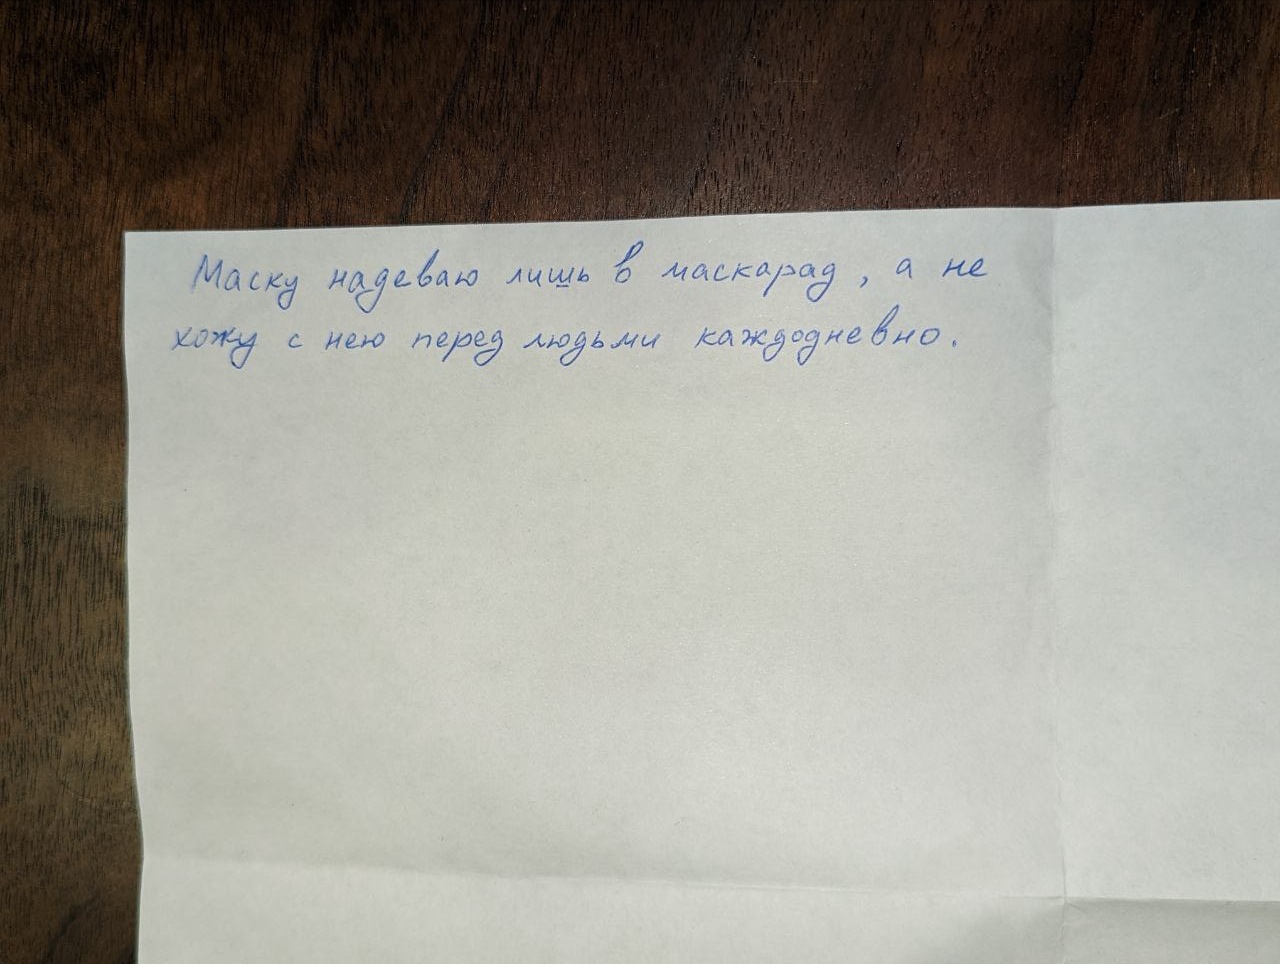 Маску надеваю лишь в маскарад, а не
хожу с нею перед людьми каждодневно.